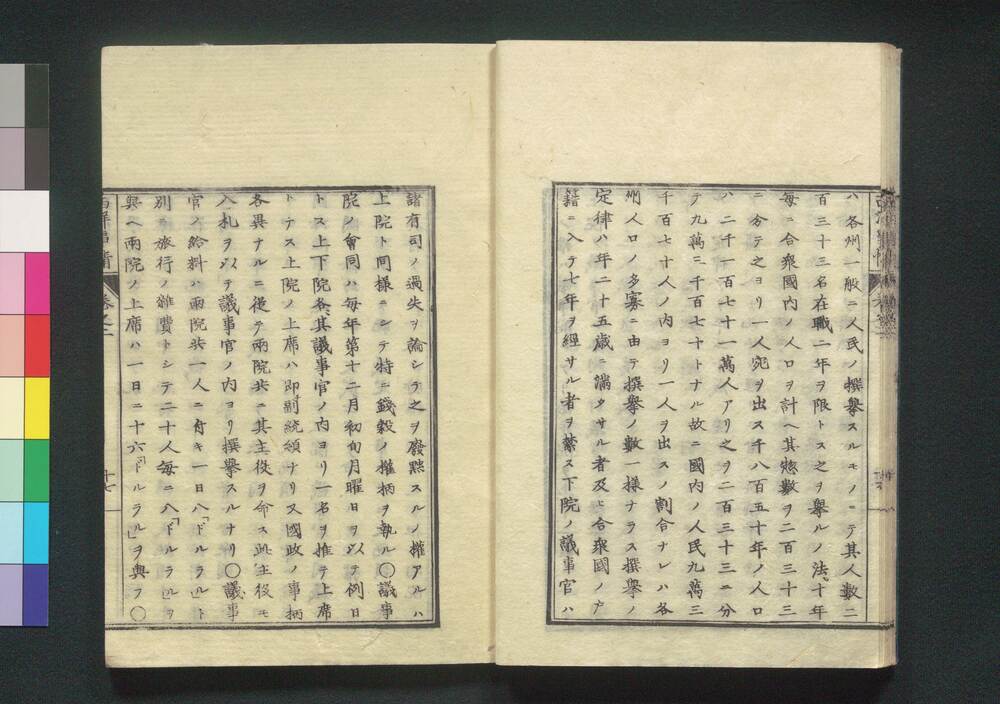 ハ各州一般ニ人民ノ撰擧スルモノニテ其人數二
百三十三名在職二年ヲ限トス之ヲ擧ルノ法十年
每ニ合衆國內ノ人口ヲ計ヘ其惣數ヲ二百三十三
ニ分テ之ヨリ一人宛ヲ出ス千八百五十年ノ人口
ハ二千一百七十一萬人アリ之ヲ二百三十三ニ分
テ九萬三千百七十トナル故ニ國內ノ人民九萬三
千百七十人ノ內ヨリ一人ヲ出スノ割合ナレハ各
州人口ノ多寡ニ由テ撰擧ノ數一樣ナラス撰擧ノ
定律ハ年二十五歲ニ滿タサル者及ヒ合衆國ノ戶
籍ニ入テ七年ヲ經サル者ヲ禁ス下院ノ議事官ハ
諸有司ノ過失ヲ論シテ之ヲ廢黜スルノ權アルハ
上院ト同樣ニシテ特ニ錢穀ノ權柄ヲ執ル〇議事
院ノ會同ハ每年第十二月初旬月曜日ヲ以テ例日
トス上下院各其議事官ノ內ヨリ一名ヲ推テ上席
トテス上院ノ上席ハ卽副統領ナリ又國政ノ事柄
各異ナルニ從テ兩院共ニ其主役ヲ命ス此主役モ
入札ヲ以テ議事官ノ內ヨリ撰擧スルナリ〇議事
官ノ給料ハ兩院共一人ニ付キ一日八「ドルラル」ト
別ニ旅行ノ雜費トシテ二十人每ニ八「ドルラル」ヲ
與ヘ兩院ノ上席ハ一日ニ十六「ドルラル」ヲ與フ〇
西洋事情 卷之二 十七